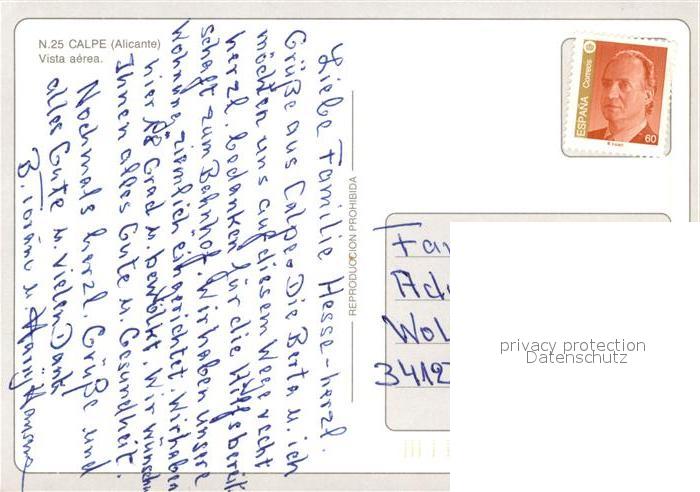 N.25 CALPE (Alicante)
Vista aérea.
Liebe Familie Hesse - herzl.
Grüße aus Calpe. Die Berta u. ich
möchten uns auf diesem Wege recht
herzl. bedanken für die Hilfsbereit
schaft zum Bahnhof. Wir haben unsere
Wohnung ziemlich eingerichtet. Wir haben
hier 18 Grad u. bewölkt. Wir wünschen
Ihnen alles Gute u. Gesundheit.
Nochmals herzl. Grüße und
alles Gute u. vielen Dank
B. u
REPRODUCCION PROHIBIDA
ESPAÑA
Correos
60
Fa
Ad
Wol
3412
privacy protection
Datenschutz